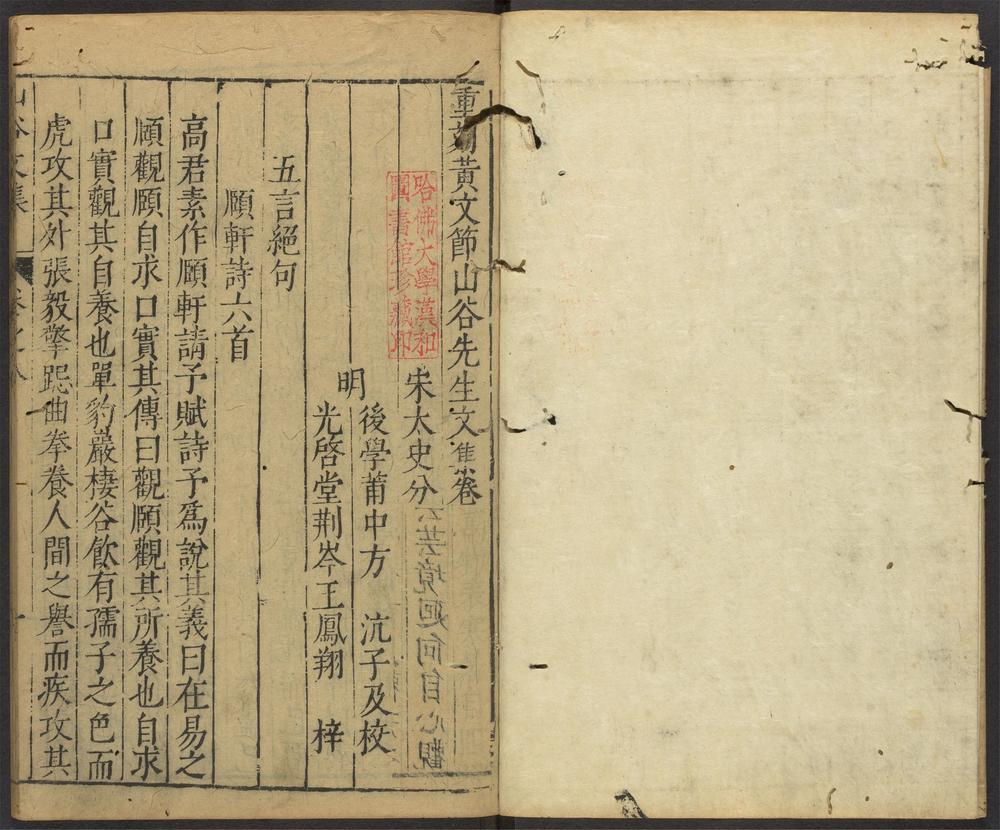 重刻黃文節山谷先生文集卷
宋太史分
哈佛大學漢和
圖書館珍藏印
後學莆中方沆子及校
明
光啓堂荆岑王鳳翔梓
五言絕句
頤軒詩六首
高君素作頤軒請予賦詩予爲說其義曰在易之
頤觀頤自求口實其傳曰觀頤觀其所養也自求
口實觀其自養也單豹巖棲谷飲有孺子之色而
虎攻其外張毅擎跽曲拳養人間之譽而疾攻其
山谷文集